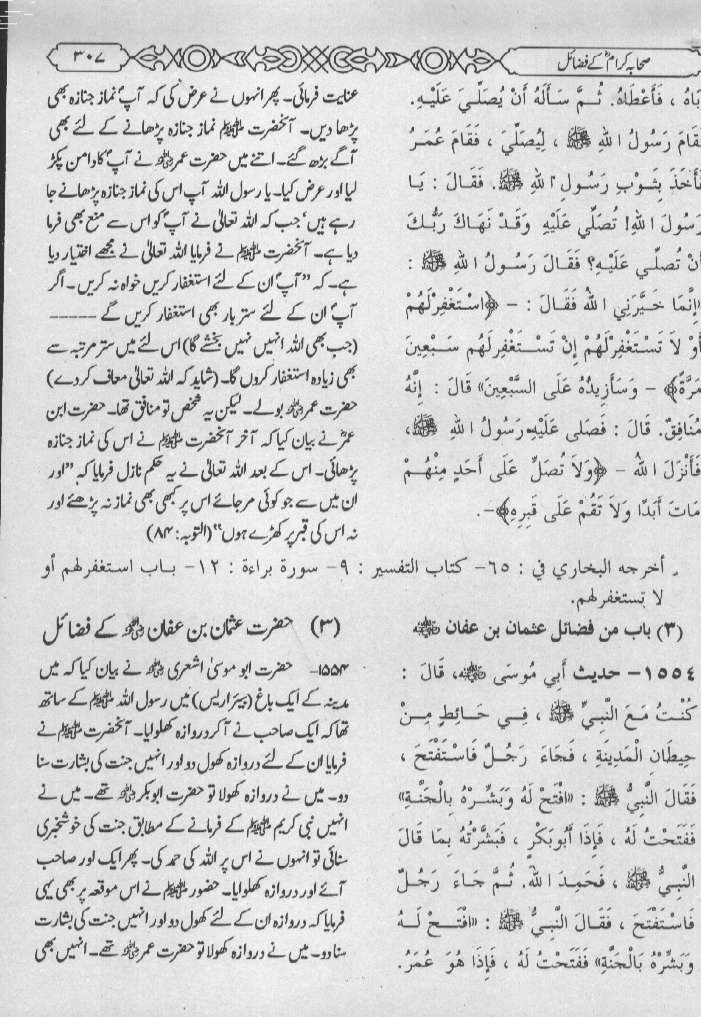 صحابہ کرامؓ کے فضائل
۳۰۷
بَاهُ ، فَأَعْطَاهُ. ثُمَّ سَأَلَهُ أَنْ يُصَلِّيَ عَلَيْهِ.
فَقَامَ رَسُولُ اللهِ ﷺ ، لِيُصَلِّيَ ، فَقَامَ عُمَرُ
فَأَخَذَ بِثَوْبِ رَسُولِ اللهِ ﷺ. فَقَالَ : يَا
رَسُولَ اللهِ! تُصَلِّي عَلَيْهِ وَقَدْ نَهَاكَ رَبُّكَ
أَنْ تُصَلِّيَ عَلَيْهِ؟ فَقَالَ رَسُولُ اللهِ ﷺ :
«إِنَّمَا خَيَّرَنِي اللهُ فَقَالَ : – ﴿اسْتَغْفِرْ لَهُمْ
أَوْ لاَ تَسْتَغْفِرْ لَهُمْ إِنْ تَسْتَغْفِرْ لَهُم سَبْعِينَ
مَرَّةً﴾ – وَسَأَزِيدُهُ عَلَى السَّبْعِينَ» قَالَ : إِنَّهُ
مُنَافِقٌ. قَالَ : فَصَلى عَلَيْهِ رَسُولُ اللهِ ﷺ،
فَأَنْزَلَ اللهُ – ﴿وَلاَ تُصَلِّ عَلَى أَحَدٍ مِنْهُمْ
مَاتَ أَبَدًا وَلاَ تَقُمْ عَلَى قَبِرِهِ﴾–.
عنایت فرمائی۔ پھر انہوں نے عرض کی کہ آپؐ نماز جنازہ بھی
پڑھا دیں۔ آنحضرت ﷺ نماز جنازہ پڑھانے کے لئے بھی
آگے بڑھ گئے۔ اتنے میں حضرت عمرؓ نے آپؐ کا دامن پکڑ
لیا اور عرض کیا۔ یا رسول اللہ آپ اس کی نماز جنازہ پڑھانے جا
رہے ہیں‘ جب کہ اللہ تعالیٰ نے آپؐ کو اس سے منع بھی فرما
دیا ہے۔ آنحضرت ﷺ نے فرمایا اللہ تعالیٰ نے مجھے اختیار دیا
ہے۔ کہ ”آپؐ ان کے لئے استغفار کریں خواہ نہ کریں۔ اگر
آپؐ ان کے لئے ستر بار بھی استغفار کریں گے ——————
(جب بھی اللہ انہیں نہیں بخشے گا) اس لئے میں ستر مرتبہ سے
بھی زیادہ استغفار کروں گا۔ (شاید کہ اللہ تعالیٰ معاف کر دے)
حضرت عمرؓ بولے۔ لیکن یہ شخص تو منافق تھا۔ حضرت ابن
عمرؓ نے بیان کیا کہ آخر آنحضرت ﷺ نے اس کی نماز جنازہ
پڑھائی۔ اس کے بعد اللہ تعالیٰ نے یہ حکم نازل فرمایا کہ ”اور
ان میں سے جو کوئی مر جائے اس پر کبھی بھی نماز نہ پڑھئے اور
نہ اس کی قبر پر کھڑے ہوں“ (التوبہ : ۸۴)
أخرجه البخاري في : ٦٥– كتاب التفسير : ٩– سورة براءة : ١٢– باب استغفرلهم أو
لا تستغفرلهم.
(٣) باب من فضائل عثمان بن عفان ؓ
١٥٥٤– حديث أَبِي مُوسَى ؓ، قَالَ :
كُنْتُ مَعَ النَّبِيِّ ﷺ ، فِي حَائِطٍ مِنْ
حِيطَانِ الْمَدِينَةِ ، فَجَاءَ رَجُلٌ فَاسْتَفْتَحَ ،
فَقَالَ النَّبِيُّ ﷺ : «افْتَحْ لَهُ وَبَشِّرْهُ بِالْجَنَّةِ»
فَفَتَحْتُ لَهُ ، فَإِذَا أَبُوبَكْرٍ ، فَبَشَّرْتُهُ بِمَا قَالَ
النَّبِيُّ ﷺ ، فَحَمِدَ اللهَ. ثُمَّ جَاءَ رَجُلٌ
فَاسْتَفْتَحَ ، فَقَالَ النَّبِيُّ ﷺ : «افْتَحْ لَهُ
وَبَشِّرْهُ بَالْجَنَّةِ» فَفَتَحْتُ لَهُ ، فَإِذَا هُوَ عُمَرُ.
(۳) حضرت عثمان بن عفان ؓ کے فضائل
۱۵۵۴– حضرت ابو موسیٰ اشعری ؓ نے بیان کیا کہ میں
مدینہ کے ایک باغ (بیئر اریس) میں رسول اللہ ﷺ کے ساتھ
تھا کہ ایک صاحب نے آ کر دروازہ کھلوایا۔ آنحضرت ﷺ نے
فرمایا ان کے لئے دروازہ کھول دو اور انہیں جنت کی بشارت سنا
دو۔ میں نے دروازہ کھولا تو حضرت ابوبکرؓ تھے۔ میں نے
انہیں نبی کریم ﷺ کے فرمانے کے مطابق جنت کی خوشخبری
سنائی تو انہوں نے اس پر اللہ کی حمد کی۔ پھر ایک اور صاحب
آئے اور دروازہ کھلوایا۔ حضور ﷺ نے اس موقعہ پر بھی یہی
فرمایا کہ دروازہ ان کے لئے کھول دو اور انہیں جنت کی بشارت
سنا دو۔ میں نے دروازہ کھولا تو حضرت عمرؓ تھے۔ انہیں بھی